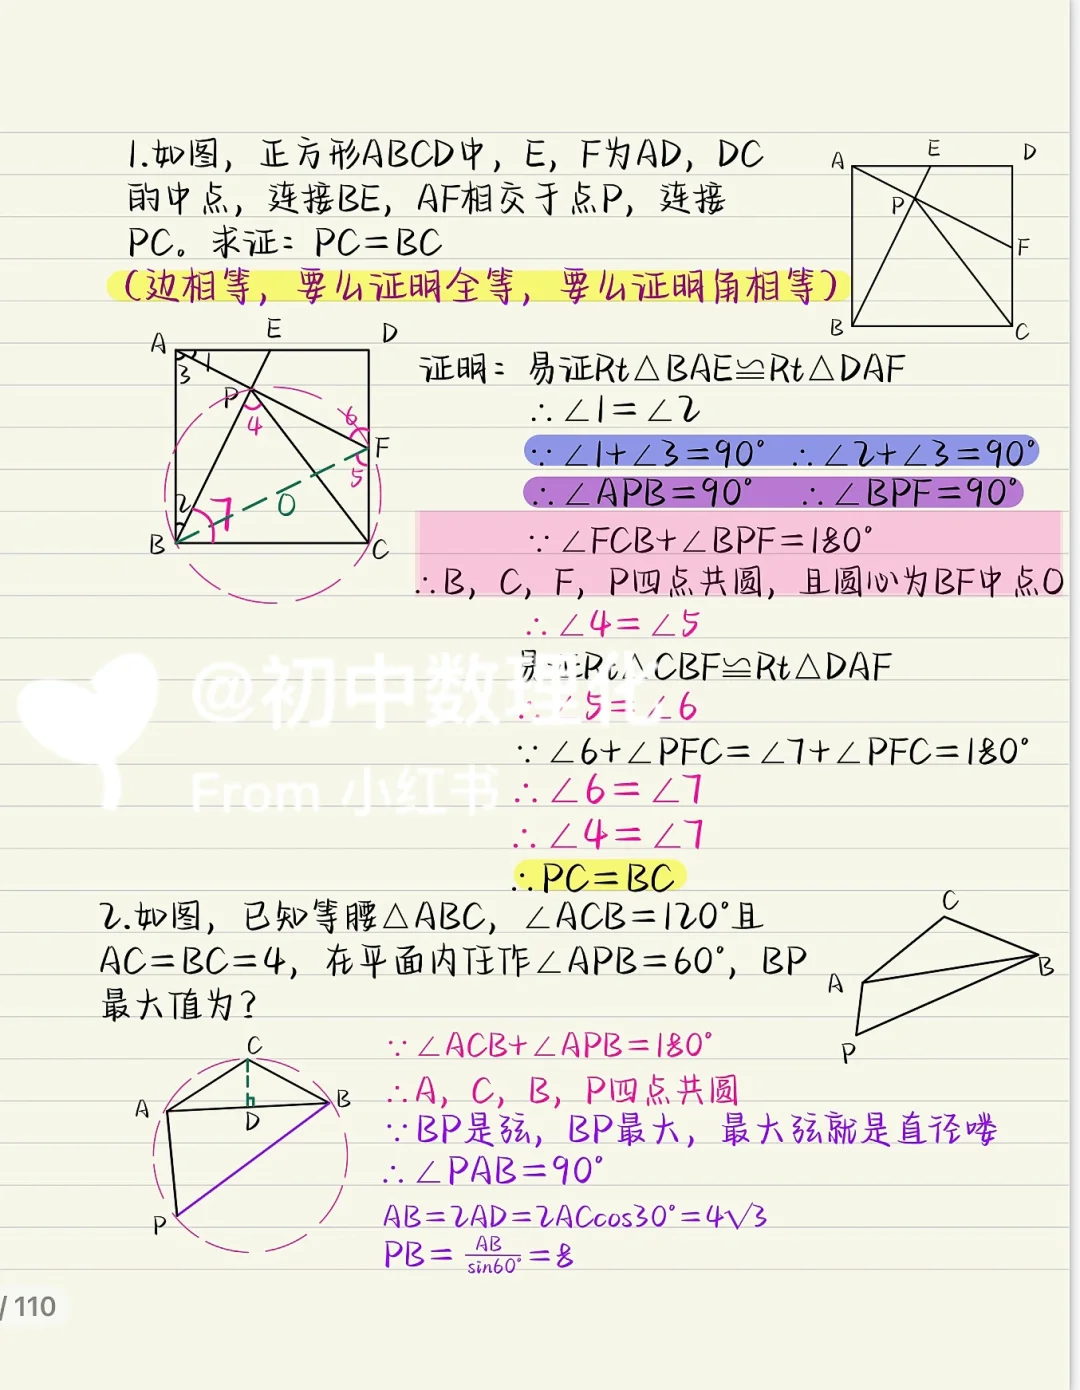 1.如图，正方形ABCD中，E，F为AD，DC
的中点，连接BE，AF相交于点P，连接
PC。求证：PC=BC
（边相等，要么证明全等，要么证明角相等）
A E D
P
F
B C
A E D
3 1
P
4
6
F
5
2
7
O
B C
证明：易证Rt△BAE≌Rt△DAF
∴∠1=∠2
∵∠1+∠3=90° ∴∠2+∠3=90°
∴∠APB=90° ∴∠BPF=90°
∵∠FCB+∠BPF=180°
∴B，C，F，P四点共圆，且圆心为BF中点O
∴∠4=∠5
易证Rt△CBF≌Rt△DAF
∴∠5=∠6
∵∠6+∠PFC=∠7+∠PFC=180°
∴∠6=∠7
∴∠4=∠7
∴PC=BC
@初中数理化
From 小红书
2.如图，已知等腰△ABC，∠ACB=120°且
AC=BC=4，在平面内任作∠APB=60°，BP
最大值为？
C
A B
P
C
A B
h
D
P
∵∠ACB+∠APB=180°
∴A，C，B，P四点共圆
∵BP是弦，BP最大，最大弦就是直径喽
∴∠PAB=90°
AB=2AD=2ACcos30°=4√3
PB=AB/sin60°=8
/ 110